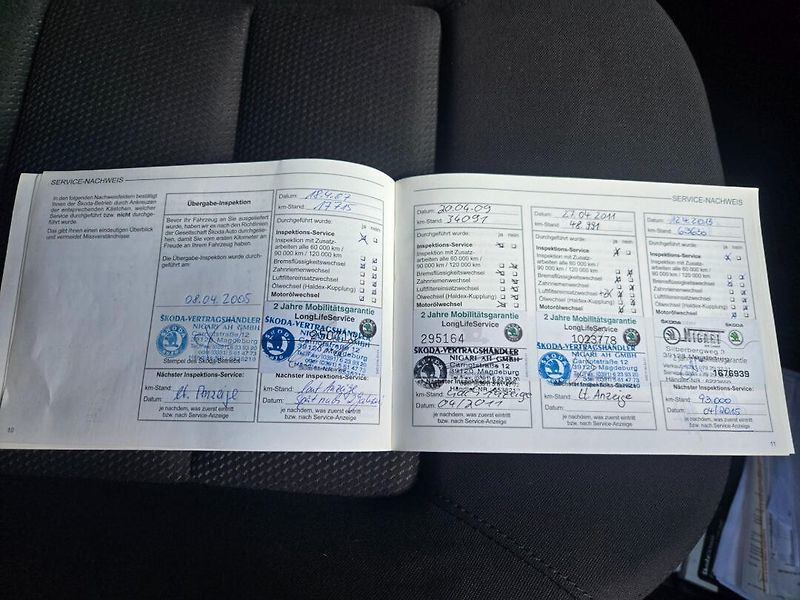 SERVICE-NACHWEIS
In den folgenden Nachweisfeldern bestätigt
Ihnen der Škoda-Betrieb durch Ankreuzen
der entsprechenden Kästchen, welcher
Service durchgeführt bzw. nicht durchge-
führt wurde.
Das gibt Ihnen einen eindeutigen Überblick
und vermeidet Missverständnisse.
10
Übergabe-Inspektion
Bevor Ihr Fahrzeug an Sie ausgeliefert
wurde, haben wir es nach den Richtlinien
der Gesellschaft Škoda Auto durchgese-
hen, damit Sie vom ersten Kilometer an
Freude an Ihrem Fahrzeug haben.
Die Übergabe-Inspektion wurde durch-
geführt am:
08.04.2005
ŠKODA-VERTRAGSHÄNDLER
NIGARI AH GMBH
Carnotstraße 12
39120 Magdeburg
Stempel des Škoda-Betriebs
Nächster Inspektions-Service:
km-Stand: lt. Anzeige
Datum:
je nachdem, was zuerst eintritt
bzw. nach Service-Anzeige
Datum: 18.4.07
km-Stand: 17715
Durchgeführt wurde: ja nein
Inspektions-Service
Inspektion mit Zusatz-
arbeiten alle 60 000 km /
90 000 km / 120 000 km
Bremsflüssigkeitswechsel
Zahnriemenwechsel
Luftfiltereinsatzwechsel
Ölwechsel (Haldex-Kupplung)
Motorölwechsel
2 Jahre Mobilitätsgarantie
LongLifeService
ŠKODA-VERTRAGSHÄNDLER
NIGARI AH GMBH
Carnotstraße 12
39120 Magdeburg
Nächster Inspektions-Service:
km-Stand: laut Anzeige
Datum:
je nachdem, was zuerst eintritt
bzw. nach Service-Anzeige
SERVICE-NACHWEIS
Datum: 20.04.09
km-Stand: 34091
Durchgeführt wurde: ja nein
Inspektions-Service
Inspektion mit Zusatz-
arbeiten alle 60 000 km /
90 000 km / 120 000 km
Bremsflüssigkeitswechsel
Zahnriemenwechsel
Luftfiltereinsatzwechsel
Ölwechsel (Haldex-Kupplung)
Motorölwechsel
2 Jahre Mobilitätsgarantie
LongLifeService
295164
ŠKODA-VERTRAGSHÄNDLER
NIGARI AH GMBH
Carnotstraße 12
39120 Magdeburg
Nächster Inspektions-Service:
km-Stand: Anzeige
Datum: 04/2011
je nachdem, was zuerst eintritt
bzw. nach Service-Anzeige
Datum: 27.04.2011
km-Stand: 48.991
Durchgeführt wurde: ja nein
Inspektions-Service
Inspektion mit Zusatz-
arbeiten alle 60 000 km /
90 000 km / 120 000 km
Bremsflüssigkeitswechsel
Zahnriemenwechsel
Luftfiltereinsatzwechsel
Ölwechsel (Haldex-Kupplung)
Motorölwechsel
2 Jahre Mobilitätsgarantie
LongLifeService
1023778
ŠKODA-VERTRAGSHÄNDLER
NIGARI AH GMBH
Carnotstraße 12
39120 Magdeburg
Nächster Inspektions-Service:
km-Stand: lt. Anzeige
Datum:
je nachdem, was zuerst eintritt
bzw. nach Service-Anzeige
Datum:
km-Stand:
Durchgeführt wurde: ja nein
Inspektions-Service
Inspektion mit Zusatz-
arbeiten alle 60 000 km /
90 000 km / 120 000 km
Bremsflüssigkeitswechsel
Zahnriemenwechsel
Luftfiltereinsatzwechsel
Ölwechsel (Haldex-Kupplung)
Motorölwechsel
ŠKODA
NIGARI
Silberbergweg
39128 Magdeburg
1676939
Nächster Inspektions-Service:
km-Stand: 93.000
Datum: 04/2015
je nachdem, was zuerst eintritt
bzw. nach Service-Anzeige
11